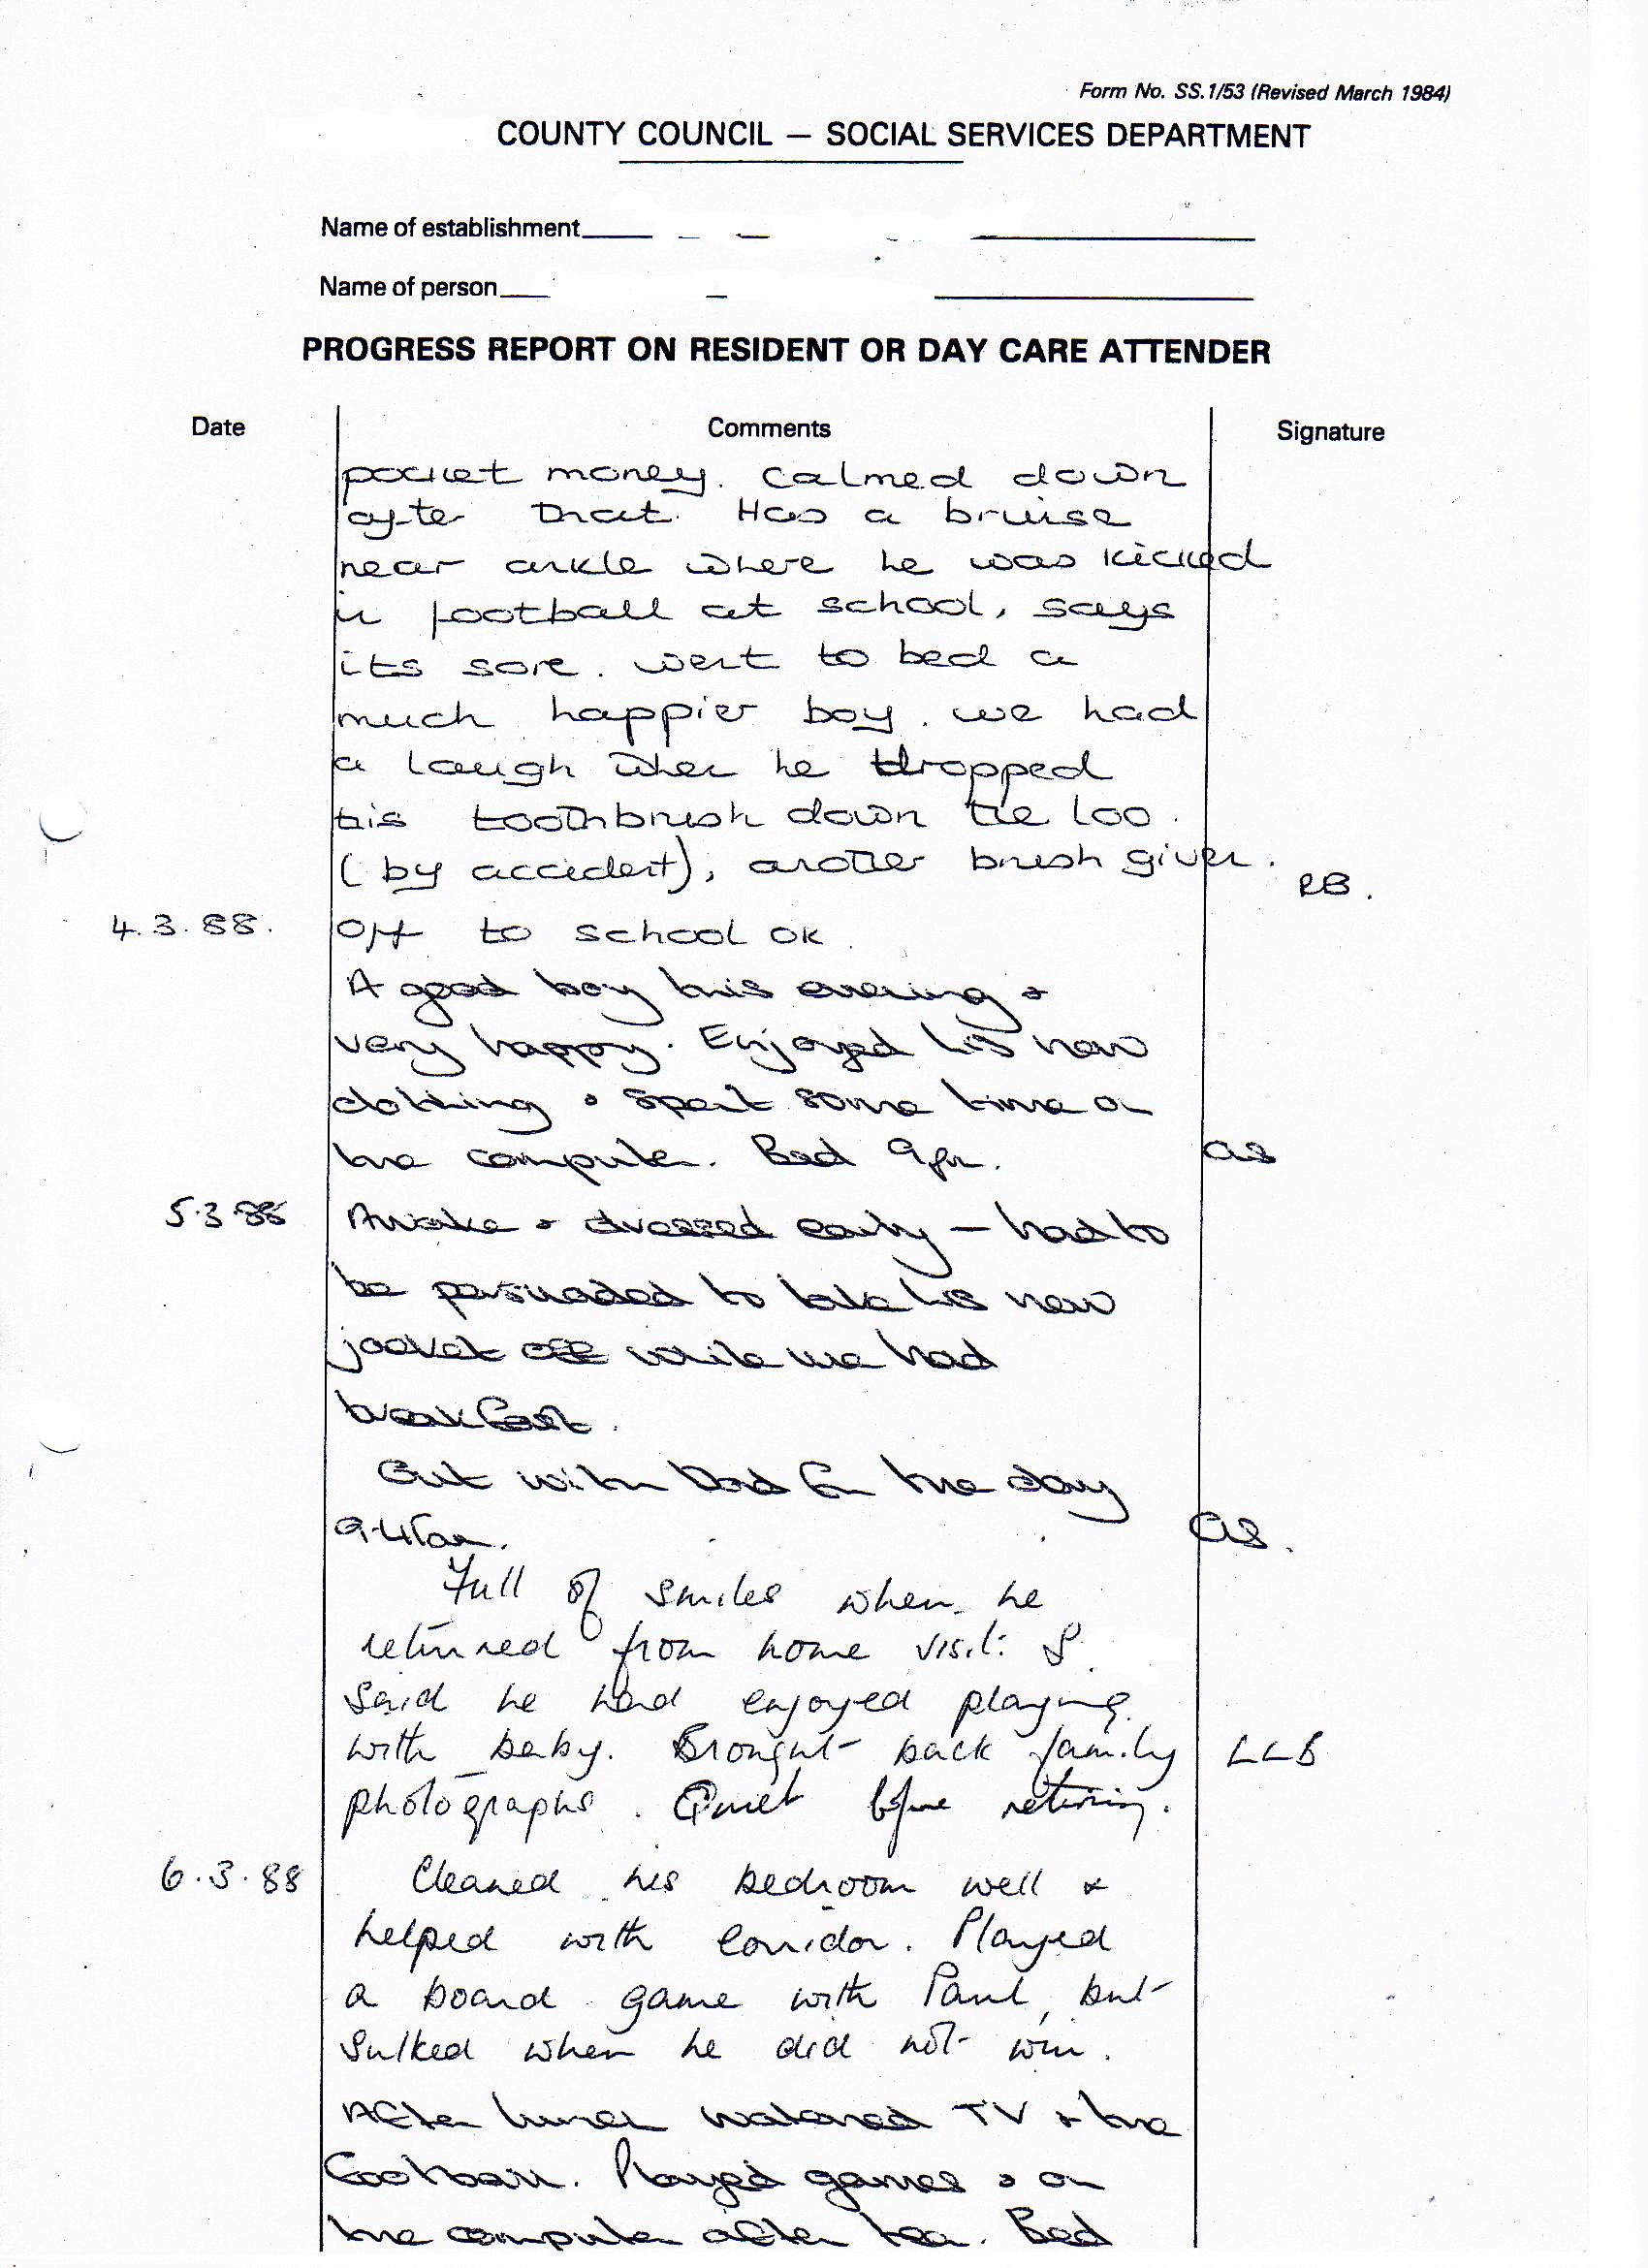 Form No. SS.1/53 (Revised March 1984)
COUNTY COUNCIL — SOCIAL SERVICES DEPARTMENT
Name of establishment
Name of person
PROGRESS REPORT ON RESIDENT OR DAY CARE ATTENDER
Date Comments Signature
pocket money. Calmed down
after that. Has a bruise
near ankle where he was kicked
in football at school, says
its sore. Went to bed a
much happier boy. we had
a laugh when he dropped
his toothbrush down the loo.
(by accident), another brush given. RB.
4.3.88. Off to school OK.
A good boy this evening &
very happy. Enjoyed his new
clothing & spent some time on
the computer. Bed 9pm. AS
5.3.88 Awake & dressed early – had to
be persuaded to take his new
jacket off while we had
breakfast.
Out with Dad for the day
9.45am. AS.
Full of smiles when he
returned from home visit. S.
Said he had enjoyed playing
with baby. Brought back family LLB
photographs. Quiet before retiring.
6.3.88 Cleaned his bedroom well &
helped with corridor. Played
a board game with Paul, but
Sulked when he did not win.
After lunch watched TV & the
football. Played games & on
the computer after tea. Bed